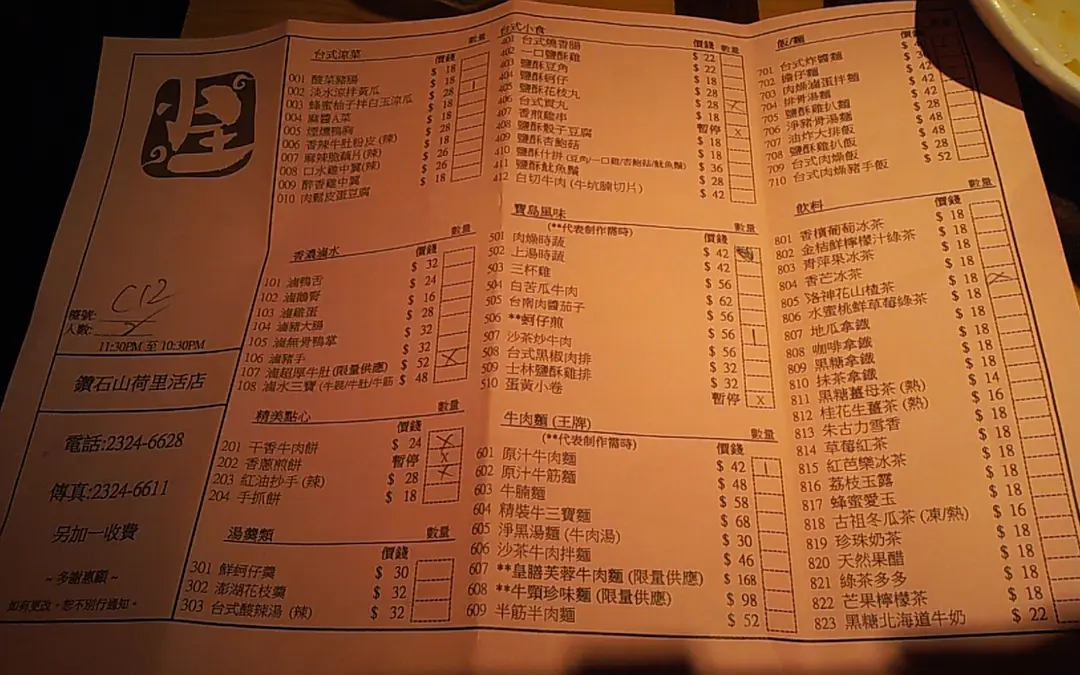 C12
檯號:
人數:
11:30PM 至 10:30PM
鑽石山荷里活店
電話:2324-6628
傳真:2324-6611
另加一收費
~ 多謝惠顧 ~
如有更改，恕不別行通知。
台式涼菜 價錢 數量
001 酸菜豬腸 $ 18
002 淡水涼拌黃瓜 $ 18
003 蜂蜜柚子拌白玉涼瓜 $ 28
004 麻醬A菜 $ 18
005 煙燻鴨胸 $ 18
006 香辣牛肚粉皮 (辣) $ 28
007 麻辣脆藕片(辣) $ 18
008 口水雞中翼(辣) $ 26
009 醉香雞中翼 $ 26
010 肉鬆皮蛋豆腐 $ 18
香濃滷水 價錢 數量
101 滷鴨舌 $ 32
102 滷鵝腎 $ 24
103 滷雞蛋 $ 16
104 滷豬大腸 $ 28
105 滷無骨鴨掌 $ 32
106 滷豬手 $ 32
107 滷超厚牛肚(限量供應) $ 52
108 滷水三寶 (牛𦟌/牛肚/牛筋 $ 48
精美點心 價錢 數量
201 干香牛肉餅 $ 24
202 香蔥煎餅 暫停 x
203 紅油抄手 (辣) $ 28
204 手抓餅 $ 18
湯羹類 價錢 數量
301 鮮蚵仔羹 $ 30
302 澎湖花枝羹 $ 32
303 台式酸辣湯 (辣) $ 32
台式小食 價錢 數量
401 台式燒香腸 $ 22
402 一口鹽酥雞
403 鹽酥豆角
404 鹽酥蚵仔
405 鹽酥花枝丸 $ 28
406 台式貢丸
407 香煎雞串 暫停 x
408 鹽酥骰子豆腐 $ 18
409 鹽酥杏鮑菇 $ 18
410 鹽酥什拼 (豆角/一口雞/杏鮑菇/魷魚鬚) $ 36
411 鹽酥魷魚鬚 $ 28
412 白切牛肉 (牛坑腩切片) $ 42
寶島風味 價錢 數量
(**代表制作需時)
501 肉燥時蔬 $ 42
502 上湯時蔬 $ 42
503 三杯雞 $ 56
504 白苦瓜牛肉 $ 62
505 台南肉醬茄子 $ 56
506 **蚵仔煎 $ 56
507 沙茶炒牛肉 $ 56
508 台式黑椒肉排 $ 32
509 士林鹽酥雞排 $ 32
510 蛋黃小卷 暫停 x
牛肉麵 (王牌) 價錢 數量
(**代表制作需時)
601 原汁牛肉麵 $ 42
602 原汁牛筋麵 $ 48
603 牛腩麵 $ 58
604 精裝牛三寶麵 $ 68
605 淨黑湯麵 (牛肉湯) $ 30
606 沙茶牛肉拌麵 $ 46
607 **皇膳芙蓉牛肉麵 (限量供應) $ 168
608 **牛頸珍味麵 (限量供應) $ 98
609 半筋半肉麵 $ 52
飯/麵 價錢
701 台式炸醬麵
702 擔仔麵
703 肉燥滷蛋拌麵
704 排骨湯麵
705 鹽酥雞扒麵
706 淨豬骨湯麵 $ 28
707 油炸大排飯 $ 48
708 鹽酥雞扒飯 $ 48
709 台式肉燥飯 $ 28
710 台式肉燥豬手飯 $ 52
飲料 價錢 數量
801 香檳葡萄冰茶 $ 18
802 金桔鮮檸檬汁綠茶 $ 18
803 青萍果冰茶 $ 18
804 香芒冰茶 $ 18
805 洛神花山楂茶 $ 18
806 水蜜桃鮮草莓綠茶 $ 18
807 地瓜拿鐵 $ 18
808 咖啡拿鐵 $ 18
809 黑糖拿鐵 $ 18
810 抹茶拿鐵 $ 18
811 黑糖薑母茶 (熱) $ 14
812 桂花生薑茶 (熱) $ 16
813 朱古力雪香 $ 18
814 草莓紅茶 $ 18
815 紅芭樂冰茶 $ 18
816 荔枝玉露 $ 18
817 蜂蜜愛玉 $ 18
818 古祖冬瓜茶 (凍/熱) $ 16
819 珍珠奶茶 $ 18
820 天然果醋 $ 18
821 綠茶多多 $ 18
822 芒果檸檬茶 $ 18
823 黑糖北海道牛奶 $ 22